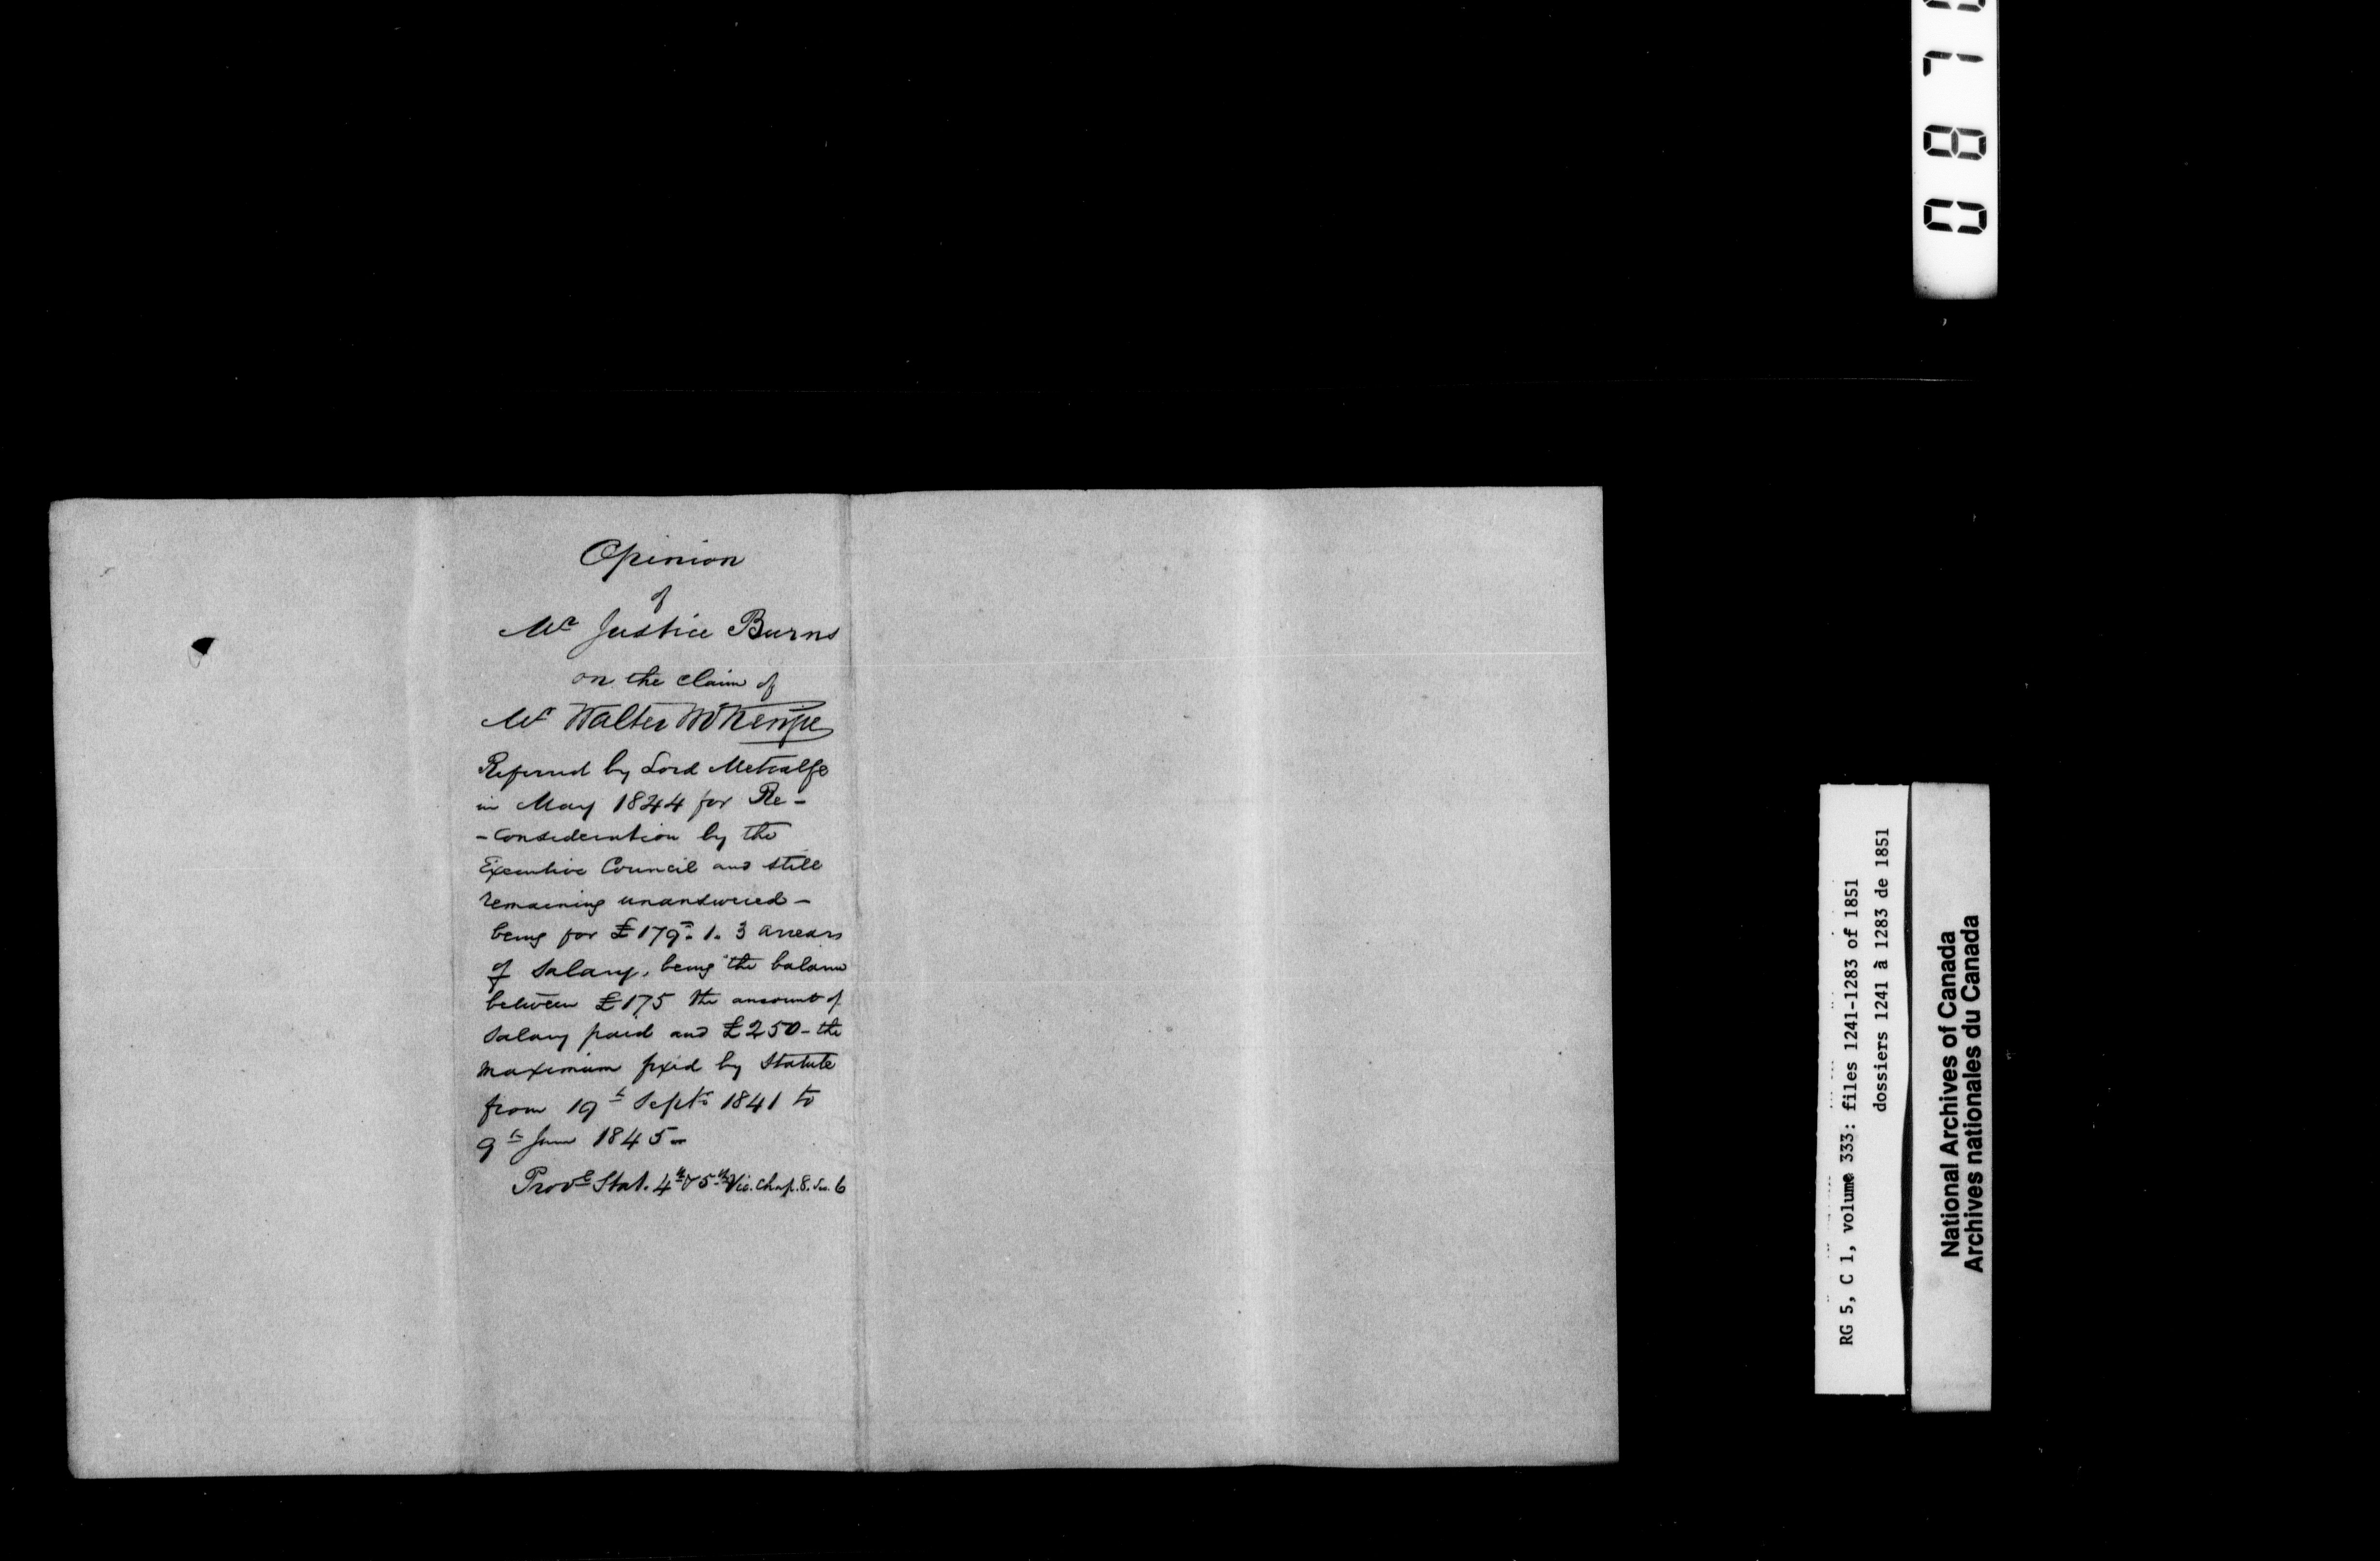 Opinion
of
Mr Justice Burns
on the claim of
Mr Walter McKenzie
Referred by Lord Metcalfe
in May 1844 for Re-
-consideration by the
Executive Council and still
remaining unanswered-
being for £179. 1. 3 arrears
of Salary, being the balance
between £175 the amount of
Salary paid and £250- the
maximum fixed by Statute
from 19th Septr 1841 to
9th June 1845-
Provl Stat. 4th & 5th Vic. Chap. 8. Sec. 6
RG 5, C 1, volume 333: files 1241-1283 of 1851
dossiers 1241 à 1283 de 1851
National Archives of Canada
Archives nationales du Canada
087